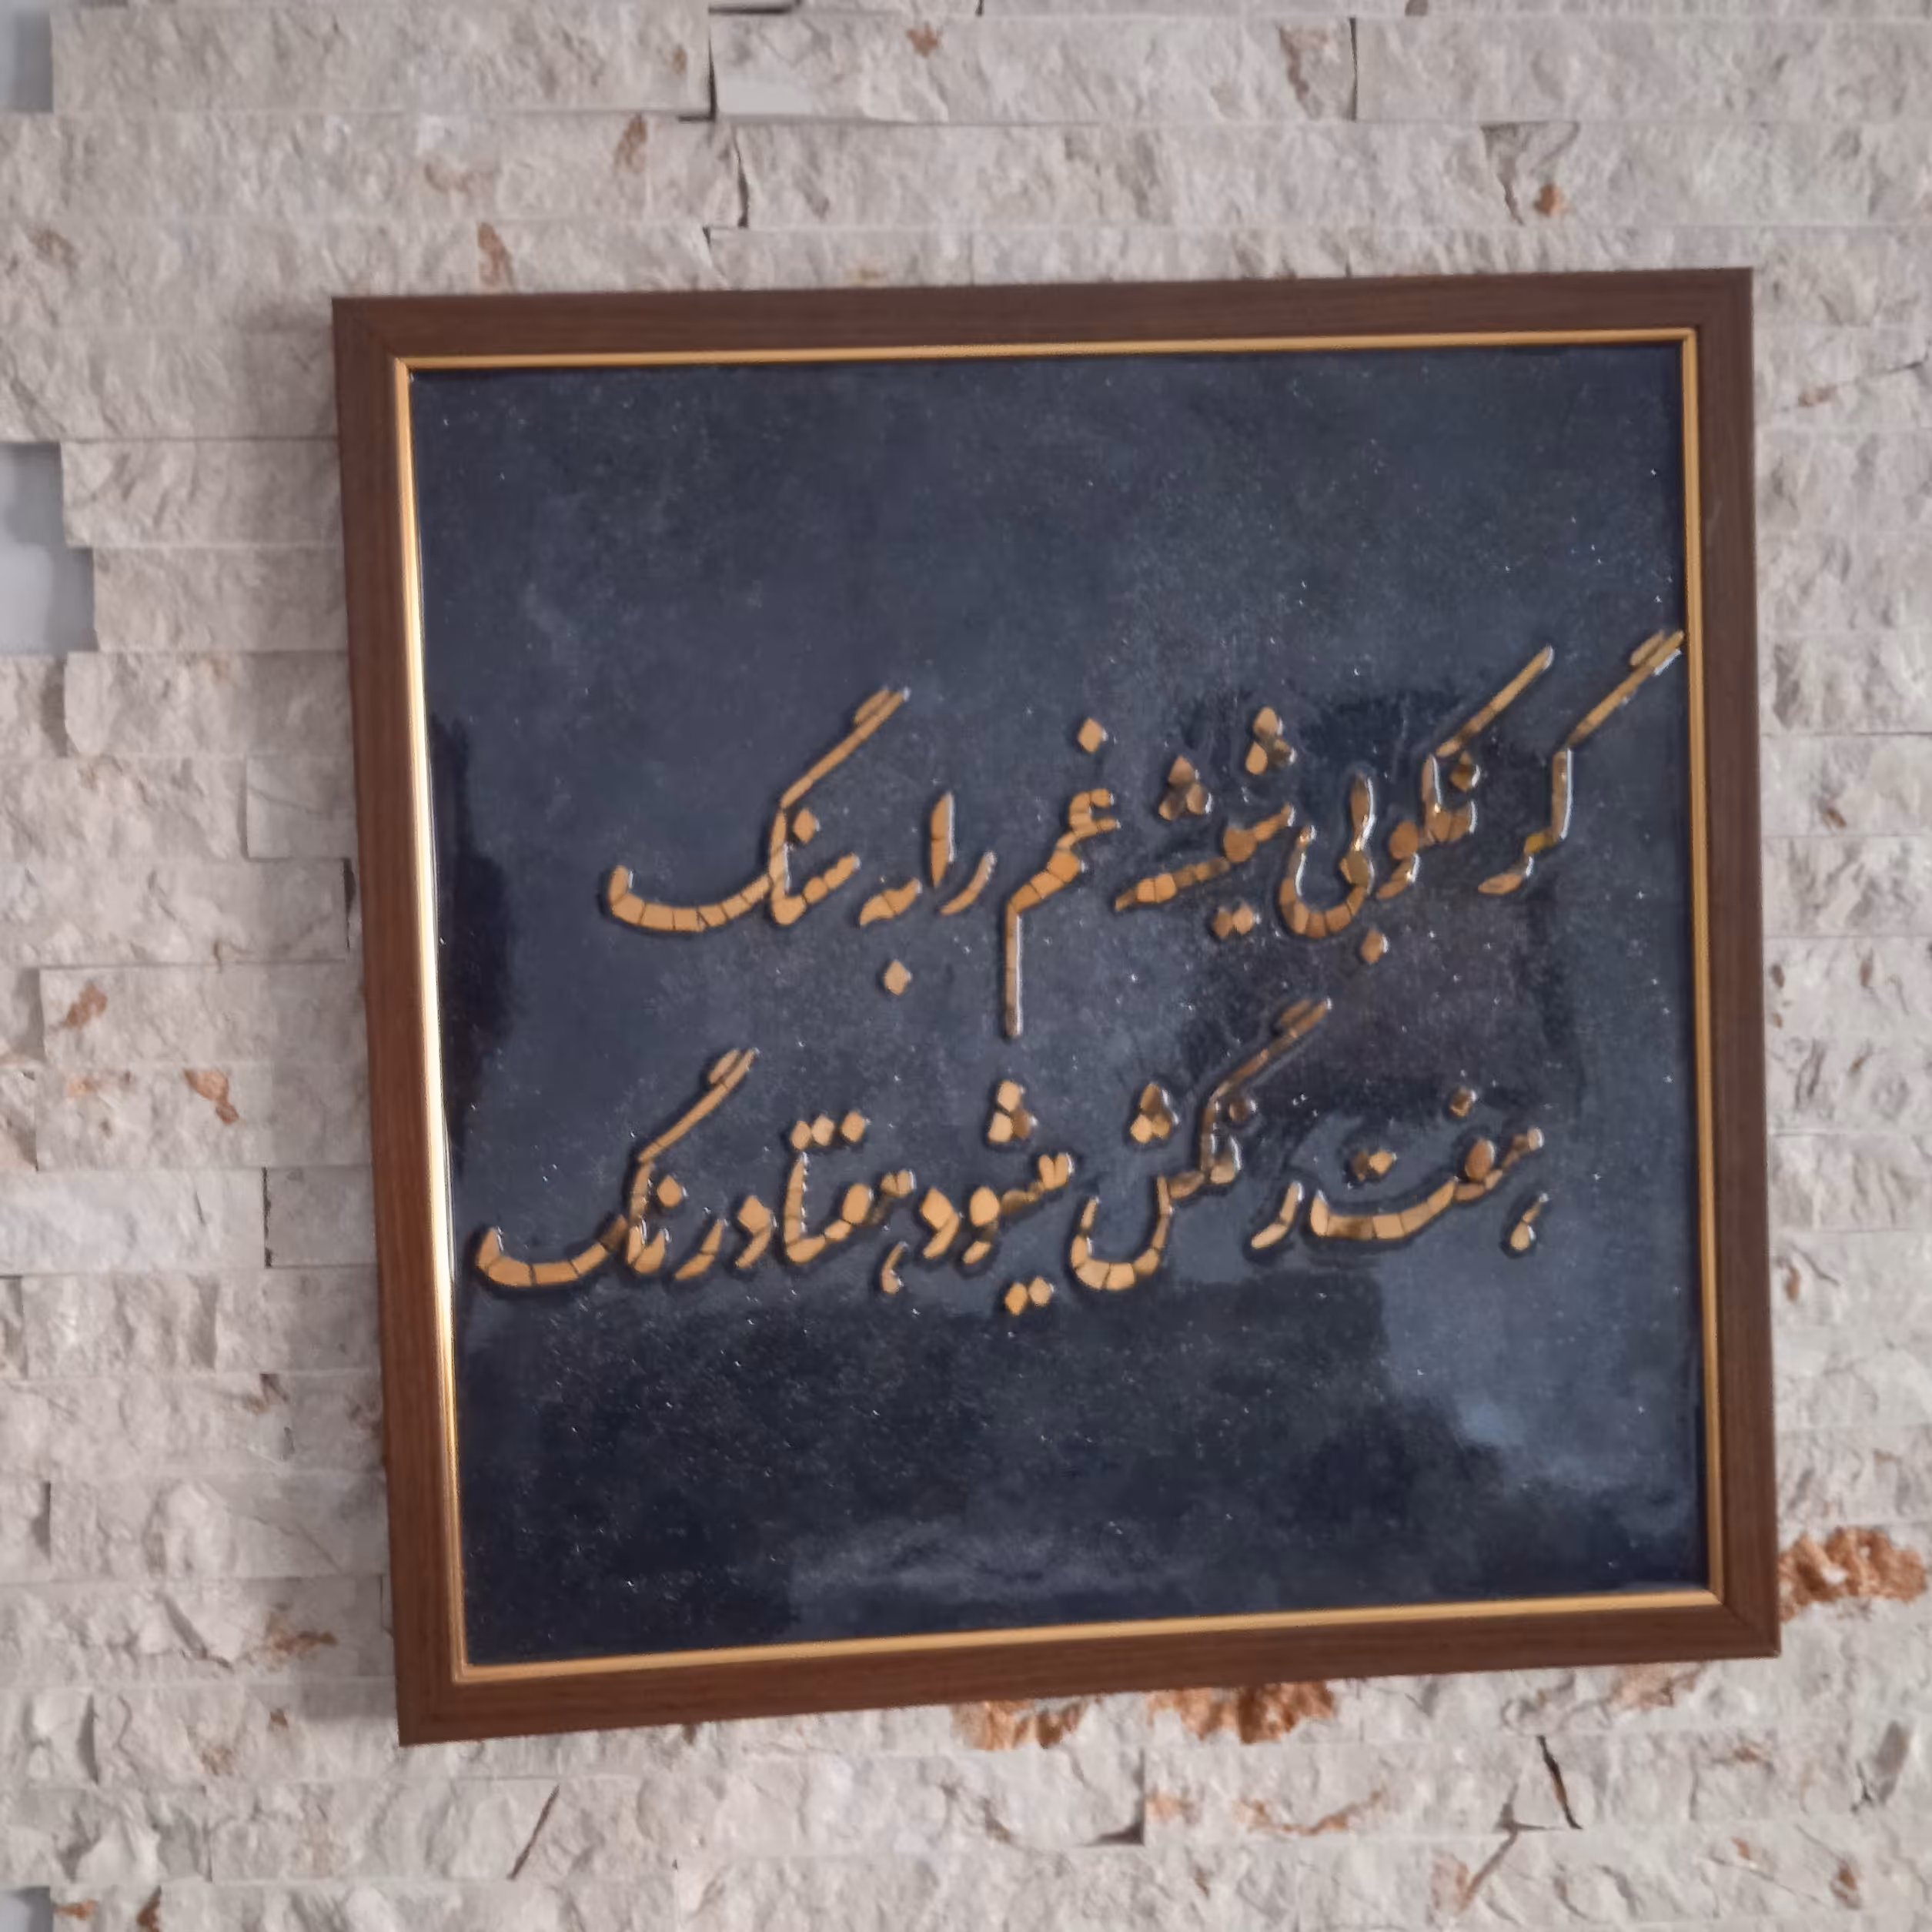 گر نکوبی شیشه غم را به سنگ
هفت رنگش میشود هفتاد رنگ